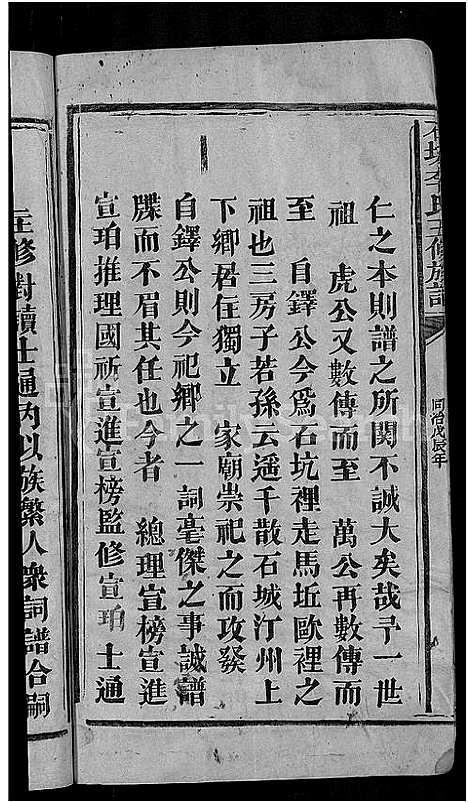 石坑李氏五修族譜
同治戊辰年
仁之本則譜之所關不誠大矣哉予一世
祖　虎公又數傳而至　萬公再數傳而
至　自鐸公今爲石坑裡走馬坵歐裡之
祖也三房子若孫云遥千散石城汀州上
下鄉居住獨立　家廟崇祀之而攻發
自鐸公則今祀鄉之一詞毫傑之事誠譜
牒而不眉其任也今者　總理宣榜宣進
宣珀推理國祈宣進宣榜監修宣珀士通
主修對讀士通內以族繁人衆詞譜合嗣